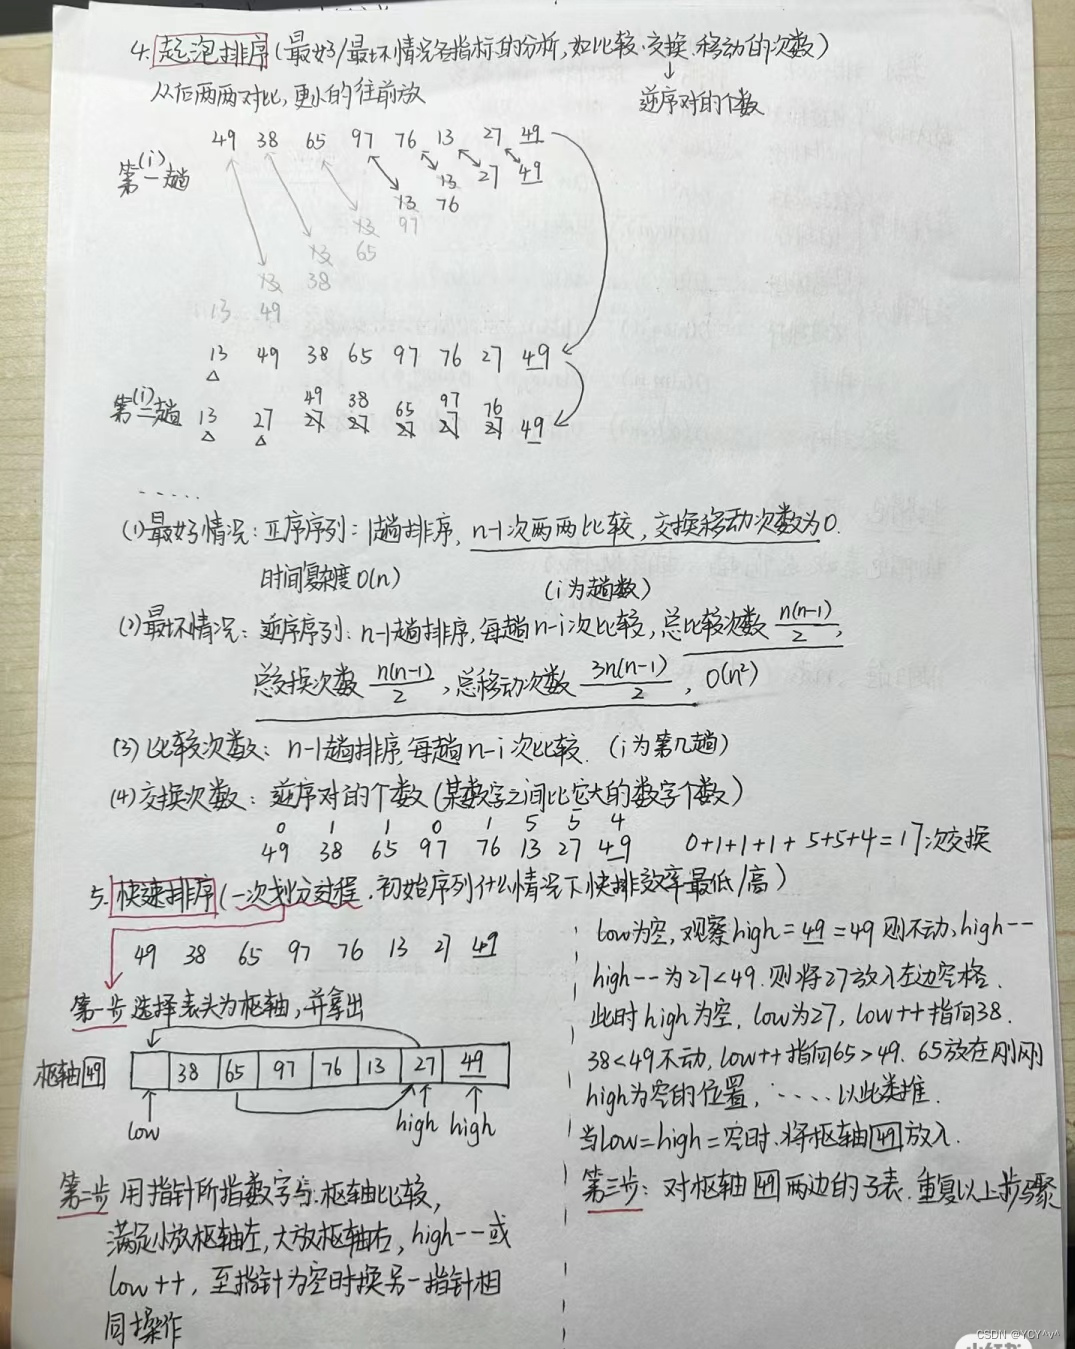 4. 起泡排序(最好/最坏情况各指标的分析,如比较、交换、移动的次数)
从后两两对比,更小的往前放
逆序对的个数
49 38 65 97 76 13 27 49
第一趟 (i)
13 27 49
13 76
13 97
13 65
13 38
13 49
13 49 38 65 97 76 27 49
49 38 65 97 76
第二趟 (i) 13 27 27 27 27 27 27 49
......
(1)最好情况:正序序列:1趟排序,n-1次两两比较,交换移动次数为0.
时间复杂度O(n) (i为趟数)
(2)最坏情况:逆序序列:n-1趟排序,每趟n-i次比较,总比较次数 n(n-1)/2,
总交换次数 n(n-1)/2,总移动次数 3n(n-1)/2,O(n²)
(3)比较次数:n-1趟排序,每趟n-i次比较.(i为第几趟)
(4)交换次数:逆序对的个数(某数字之间比它大的数字个数)
0 1 1 0 1 5 5 4
49 38 65 97 76 13 27 49 0+1+1+1+5+5+4=17次交换
5. 快速排序(一次划分过程,初始序列什么情况下快排效率最低/高)
49 38 65 97 76 13 27 49
第一步 选择表头为枢轴,并拿出
枢轴 49 38 65 97 76 13 27 49
low high high
第二步 用指针所指数字与枢轴比较,
满足小放枢轴左,大放枢轴右,high--或
low++,至指针为空时换另一指针相
同操作
low为空,观察high=49=49则不动,high--
high--为27<49.则将27放入左边空格.
此时high为空,low为27,low++指向38.
38<49不动,low++指向65>49.65放在刚刚
high为空的位置,.....以此类推.
当low=high=空时,将枢轴49放入.
第三步:对枢轴49两边的子表.重复以上步骤
CSDN @YCY^v^
小红书